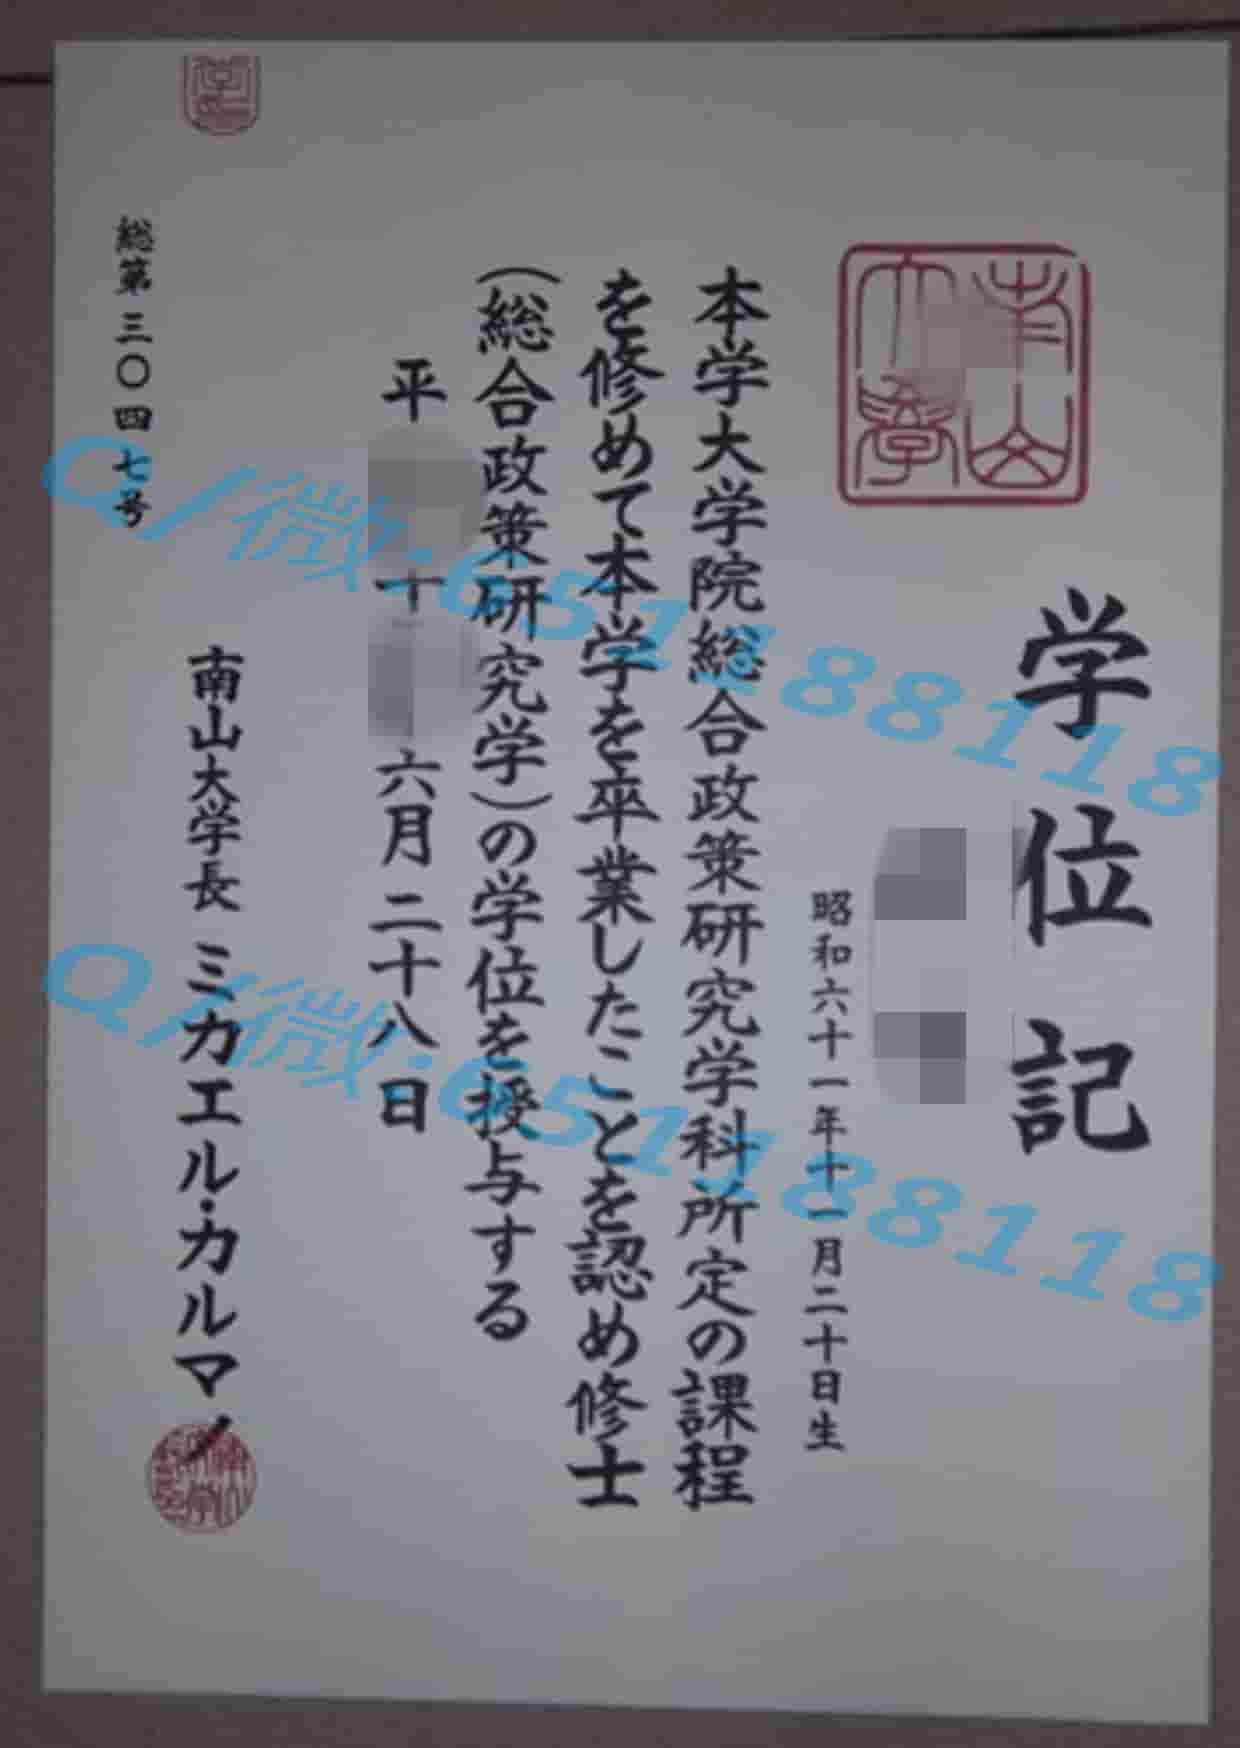 学位記
昭和六十一年十一月二十日生
本学大学院総合政策研究学科所定の課程
を修めて本学を卒業したことを認め修士
(総合政策研究学)の学位を授与する
平
十
六月二十八日
南山大学長 ミカエル・カルマノ
総第三〇四七号
Q/微:65188118
Q/微:65188118